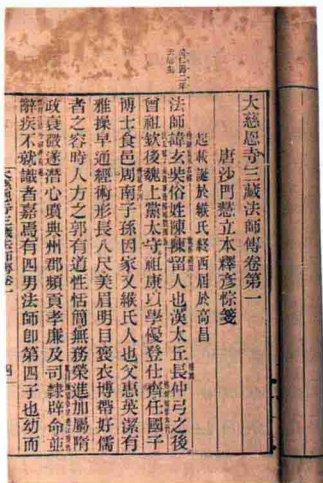 大慈恩寺三藏法師傳卷第一
唐沙門慧立本釋彥悰箋
起載誕於緱氏終西屆於高昌
法師諱玄奘俗姓陳陳留人也漢太丘長仲弓之後
曾祖欽後魏上黨太守祖康以學優登仕齊任國子
博士食邑周南子孫因家又緱氏人也父惠英潔有
雅操早通經術形長八尺美眉明目褒衣博帶好儒
者之容時人方之郭有道性恬簡無務榮進加屬隋
政衰微遂潛心墳典州郡頻貢孝廉及司隸辟命並
辭疾不就識者嘉焉有四男法師卽第四子也幼而
大慈恩寺三藏法師傳卷一
四